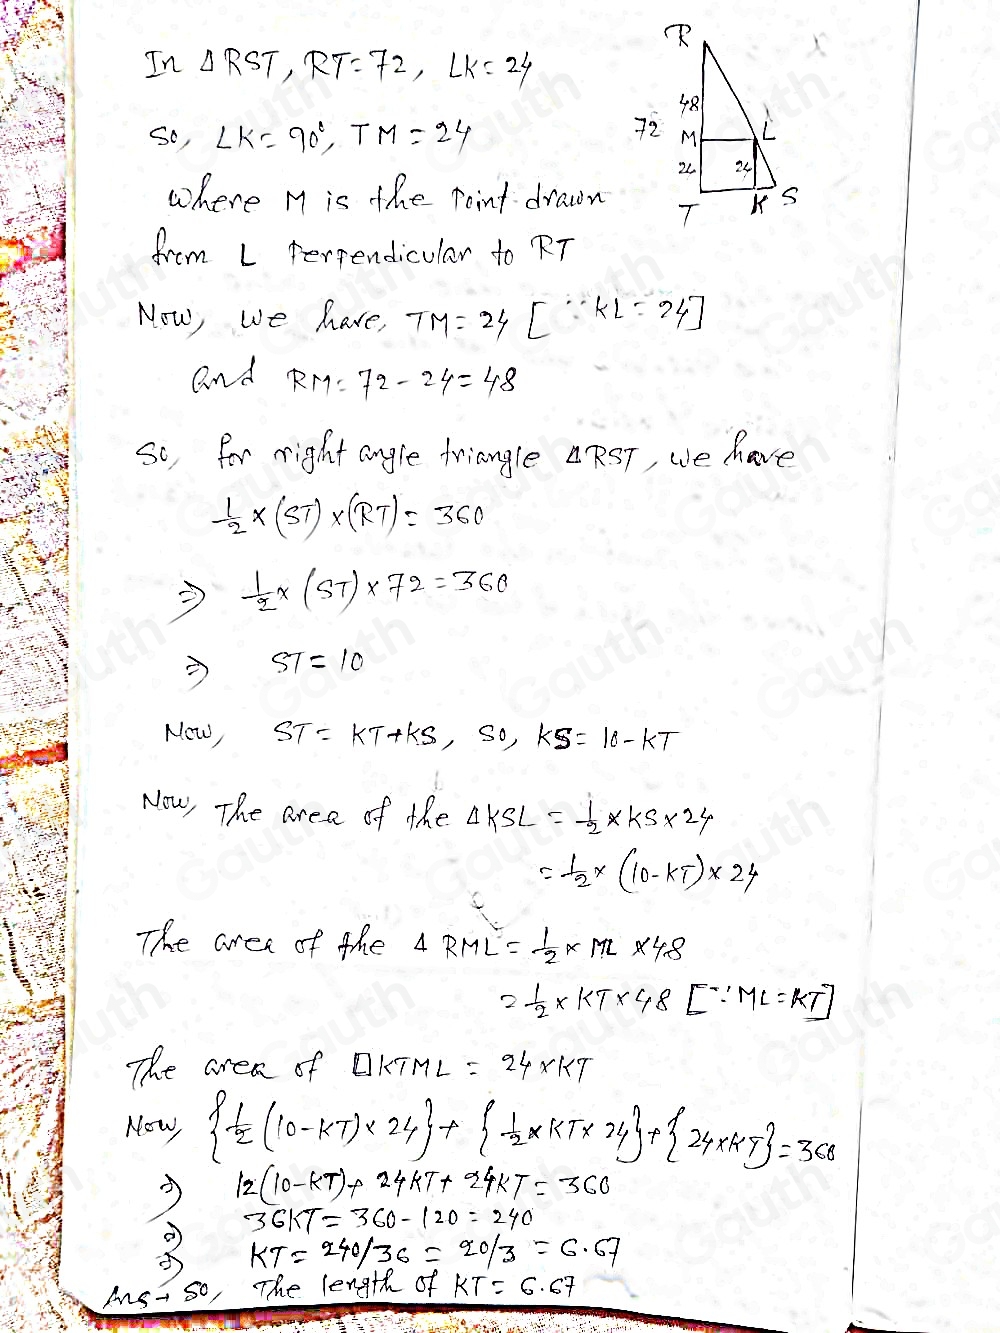 In ΔRST, RT=72, LK=24
So, ∠K=90°, TM=24
where M is the Point drawn
from L Perpendicular to RT
Now, we have, TM=24 [∵ KL=24]
and RM=72-24=48
So, for right angle triangle ΔRST, we have
1/2×(ST)×(RT)=360
⇒ 1/2×(ST)×72=360
⇒ ST=10
Now, ST=KT+KS, so, KS=10-KT
Now, The area of the ΔKSL=1/2×KS×24
=1/2×(10-KT)×24
The area of the Δ RML=1/2×ML×48
=1/2×KT×48 [∵ML=KT]
The area of □KTML=24×KT
Now, {1/2(10-KT)×24}+{1/2×KT×24}+{24×KT}=360
⇒ 12(10-KT)+24KT+24KT=360
⇒ 36KT=360-120=240
⇒ KT=240/36=20/3=6.67
Ans→ So, The length of KT=6.67
R
48
72
M
L
24
24
T
K
S
Gauth